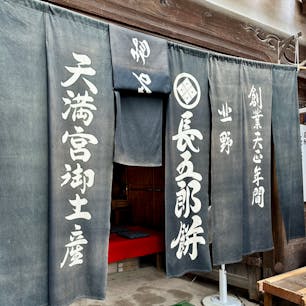 創業天正年間
北野
長五郎餅
天満宮御土産